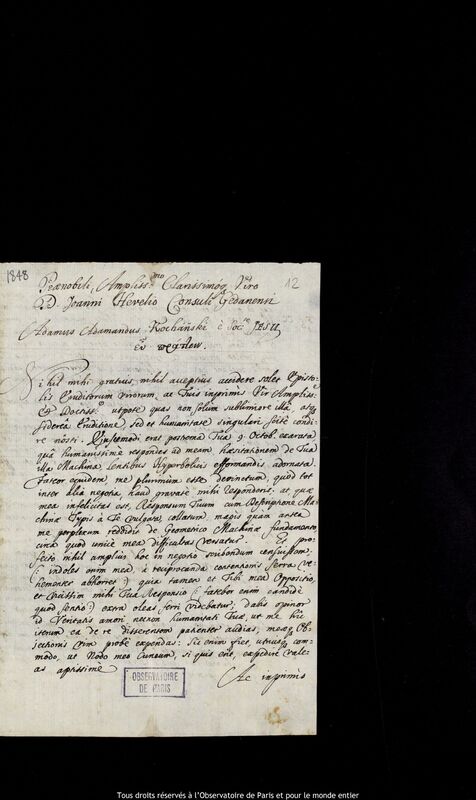 1848
12
Prænobili, Ampliss.mo Clarissimoq Viro
D. Joanni Hevelio Consuli Gedanensi
Adamus Adamandus Kochański è Soc. JESU
εὖ πράττειν.
Nihil mihi gratius, nihil acceptius accidere solet Episto-
lis Eruditorum virorum, ac Tuis inprimis Vir Ampliss:
et Doctiss: utpote quas non solum sublimiore illa, atq
siderea Eruditione, sed et humanitate singulari soles condi-
re nosti. Ejusmodi erat postrema Tua 9. Octob. exarata
quâ humanissime respondes ad meam hæsitationem de Tua
illa Machina Lentibus Hyperbolicis efformandis adornata.
Fateor equidem me plurimum esse devinctum, quod tot
inter alia negotia, haud gravatè mihi responderis: at quæ
mea infelicitas est, Responsum Tuum cum Descriptione Ma-
chinæ Typis à Te vulgatæ, collatum, magis quam antea
me perplexum reddidit de Geometrico Machinæ fundamento,
circa quod unicè mea difficultas versatur. Et pro-
fecto nihil amplius hoc in negotio scribendum censuissem,
(: indoles enim mea, à reciprocanda contentionis serra ve-
hementer abhorret :) quia tamen et Tibi mea Oppositio,
et vicissim mihi Tua Responsio (: fatebor enim candidè
quod sentio :) extra oleas ferri videbatur; dabis opinor
id Veritatis amori, necnon humanitati Tuæ, ut me hic
iterum ea de re disserentem patienter audias, measq Ob-
jectiones probè expendas: Sic enim fiet, utriusq com-
modo, ut Nodo meo Cuneum, si quis erit, expedire vale-
as aptissimè
Ac inprimis
OBSERVATOIRE
DE PARIS
Tous droits réservés à l'Observatoire de Paris et pour le monde entier